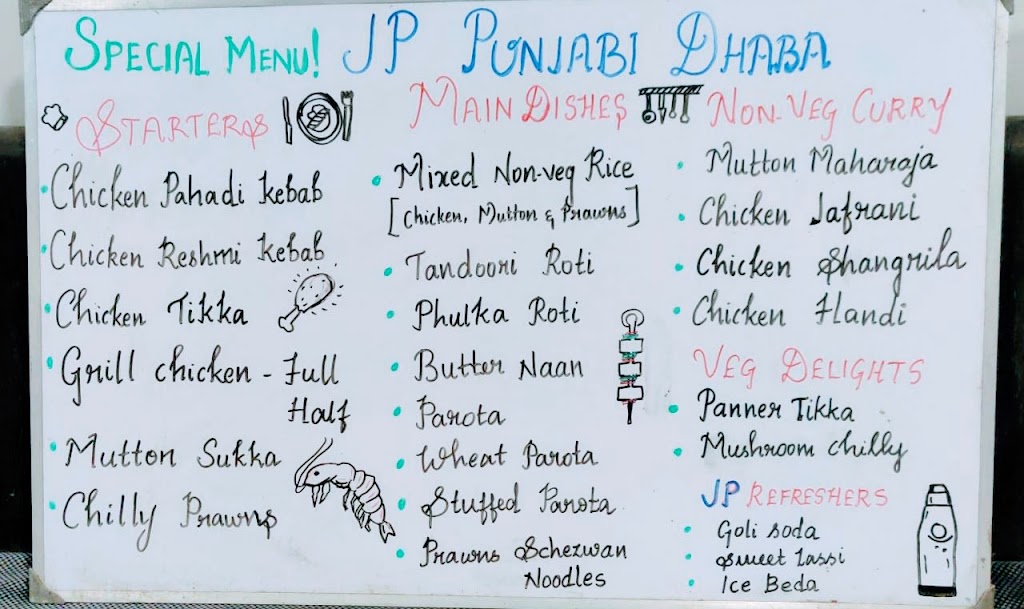 Special Menu! JP Punjabi Dhaba
Starters
Chicken Pahadi Kebab
Chicken Reshmi Kebab
Chicken Tikka
Grill chicken - Full
Half
Mutton Sukka
Chilly Prawns
Main Dishes
Mixed Non-veg Rice
[Chicken, Mutton & Prawns]
Tandoori Roti
Phulka Roti
Butter Naan
Parota
Wheat Parota
Stuffed Parota
Prawns Schezwan
Noodles
Non-Veg Curry
Mutton Maharaja
Chicken Jafrani
Chicken Shangrila
Chicken Handi
Veg Delights
Panner Tikka
Mushroom chilly
JP Refreshers
Goli soda
Sweet Lassi
Ice Beda